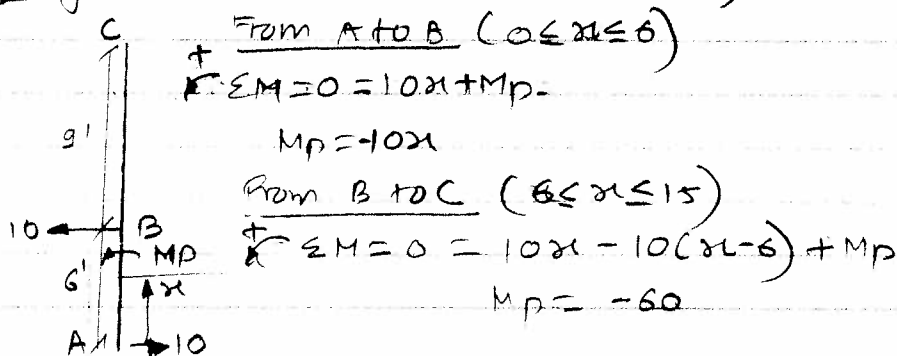 C
From A to B (0≤x≤6)
+
ΣM=0=10x+Mp
Mp=-10x
9'
From B to C (6≤x≤15)
+
ΣM=0=10x-10(x-6)+Mp
Mp=-60
10
B
Mp
6'
x
A
10